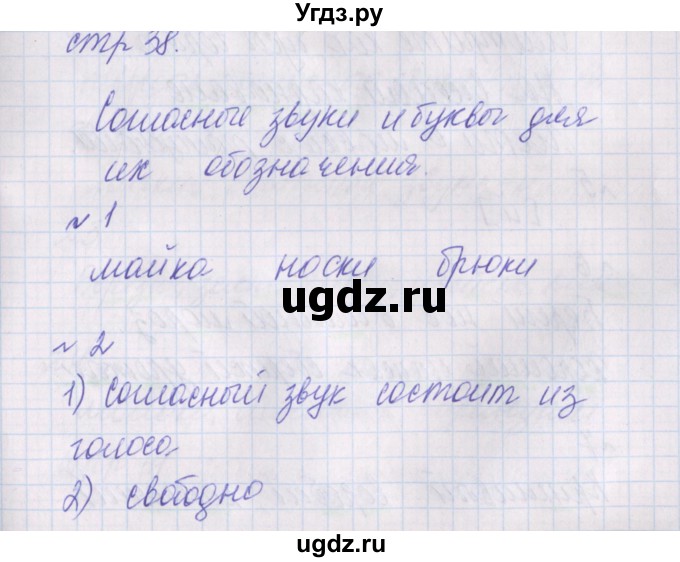 Угдз.ру
стр 38.
Согласные звуки и буквы для
их обозначения.
№ 1
майка носки брюки
ugdz.ru
№ 2
1) Согласный звук состоит из
голоса
2) свободно
ugdz.ru